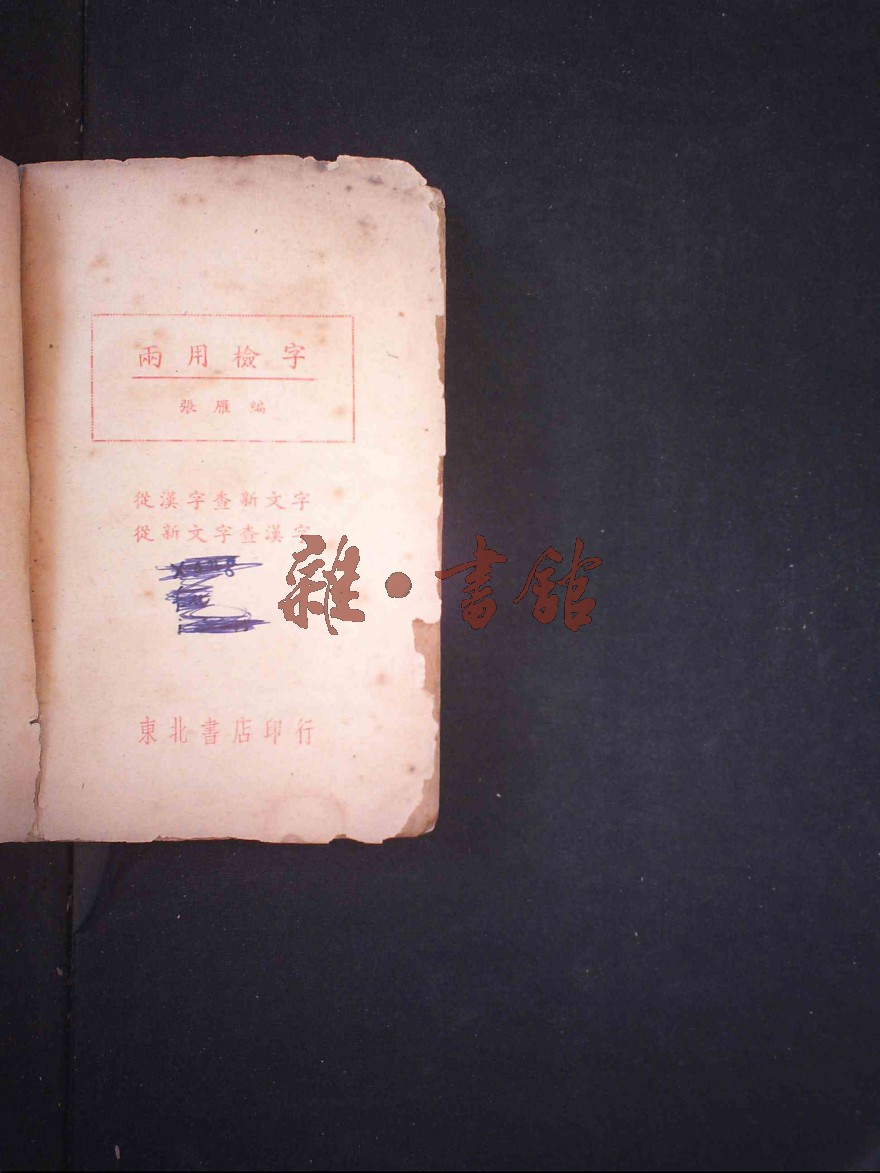 兩用檢字
張雁編
從漢字查新文字
從新文字查漢字
雜·書館
東北書店印行